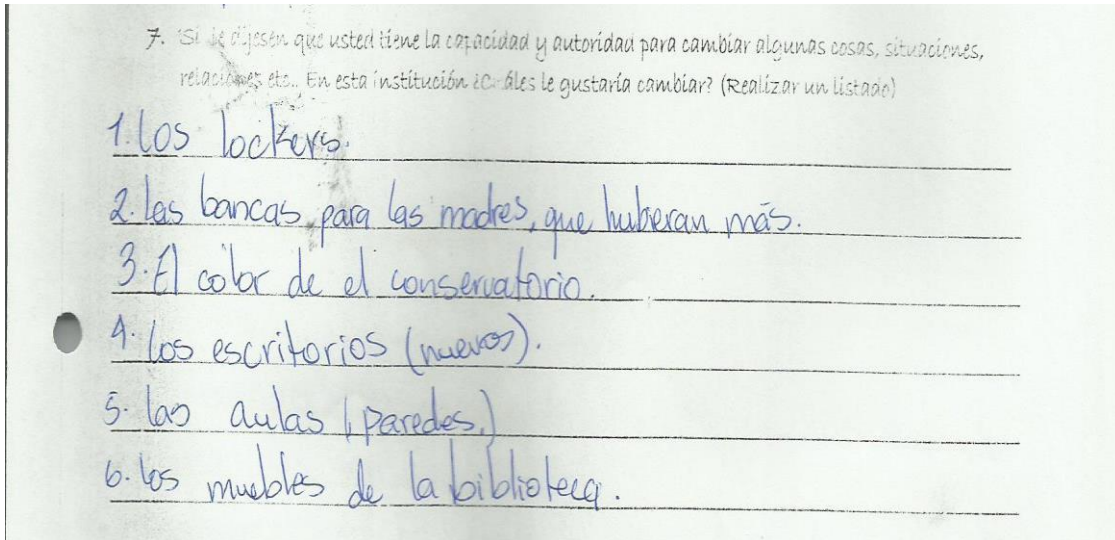 7. Si le dijesen que usted tiene la capacidad y autoridad para cambiar algunas cosas, situaciones,
relaciones etc.. En esta institución ¿Cuáles le gustaría cambiar? (Realizar un listado)
1. los lockers.
2. las bancas para las madres, que huberan más.
3. El color de el conservatorio.
4. los escritorios (nuevos).
5. las aulas (paredes.)
6. los muebles de la biblioteca.